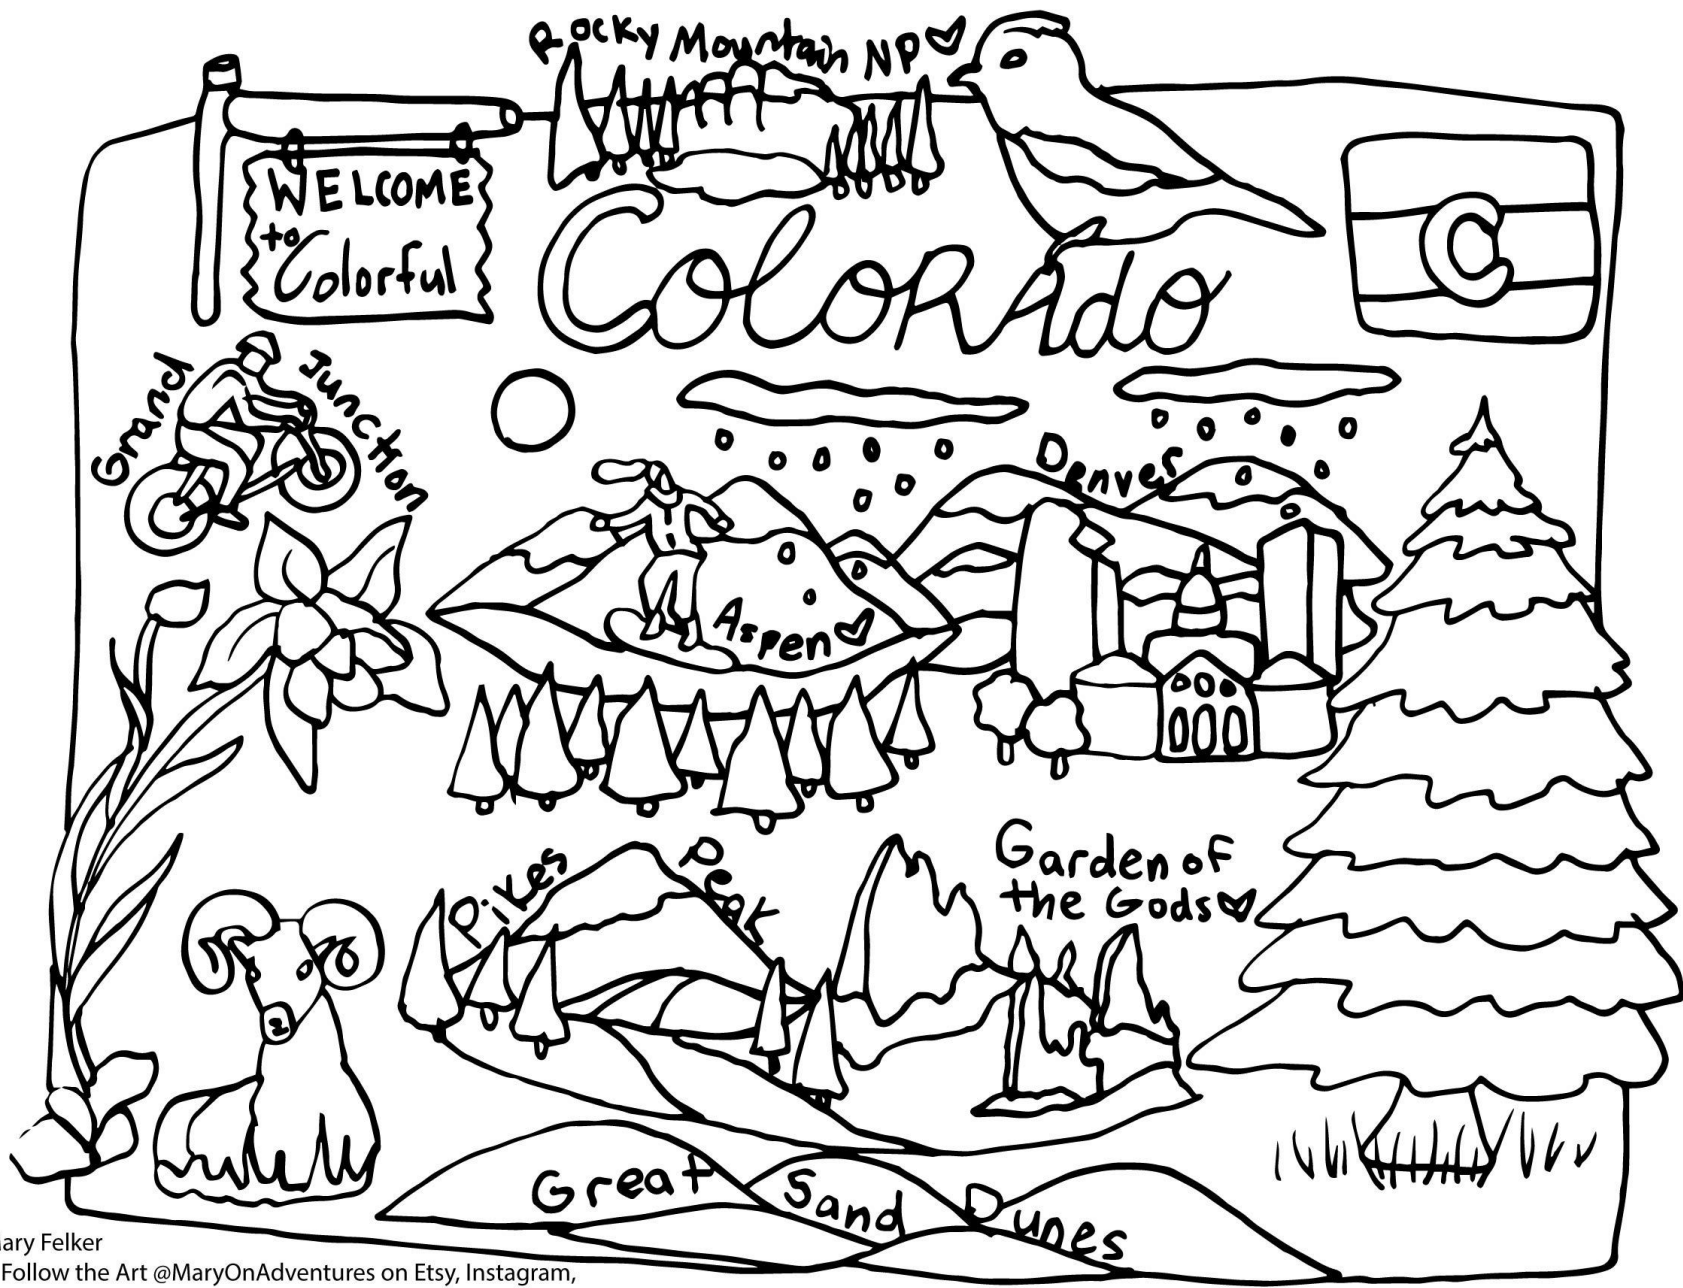 Rocky Mountain NP
WELCOME
to
Colorful
Colorado
C
Grand Junction
Denver
Aspen
Pikes Peak
Garden of
the Gods
Great Sand Dunes
Mary Felker
Follow the Art @MaryOnAdventures on Etsy, Instagram,